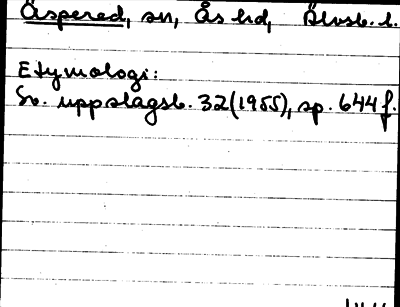 Äspered, sn, Ås hd, Älvsb. l.
Etymologi:
Sv. uppslagsb. 32 (1955), sp. 644 f.